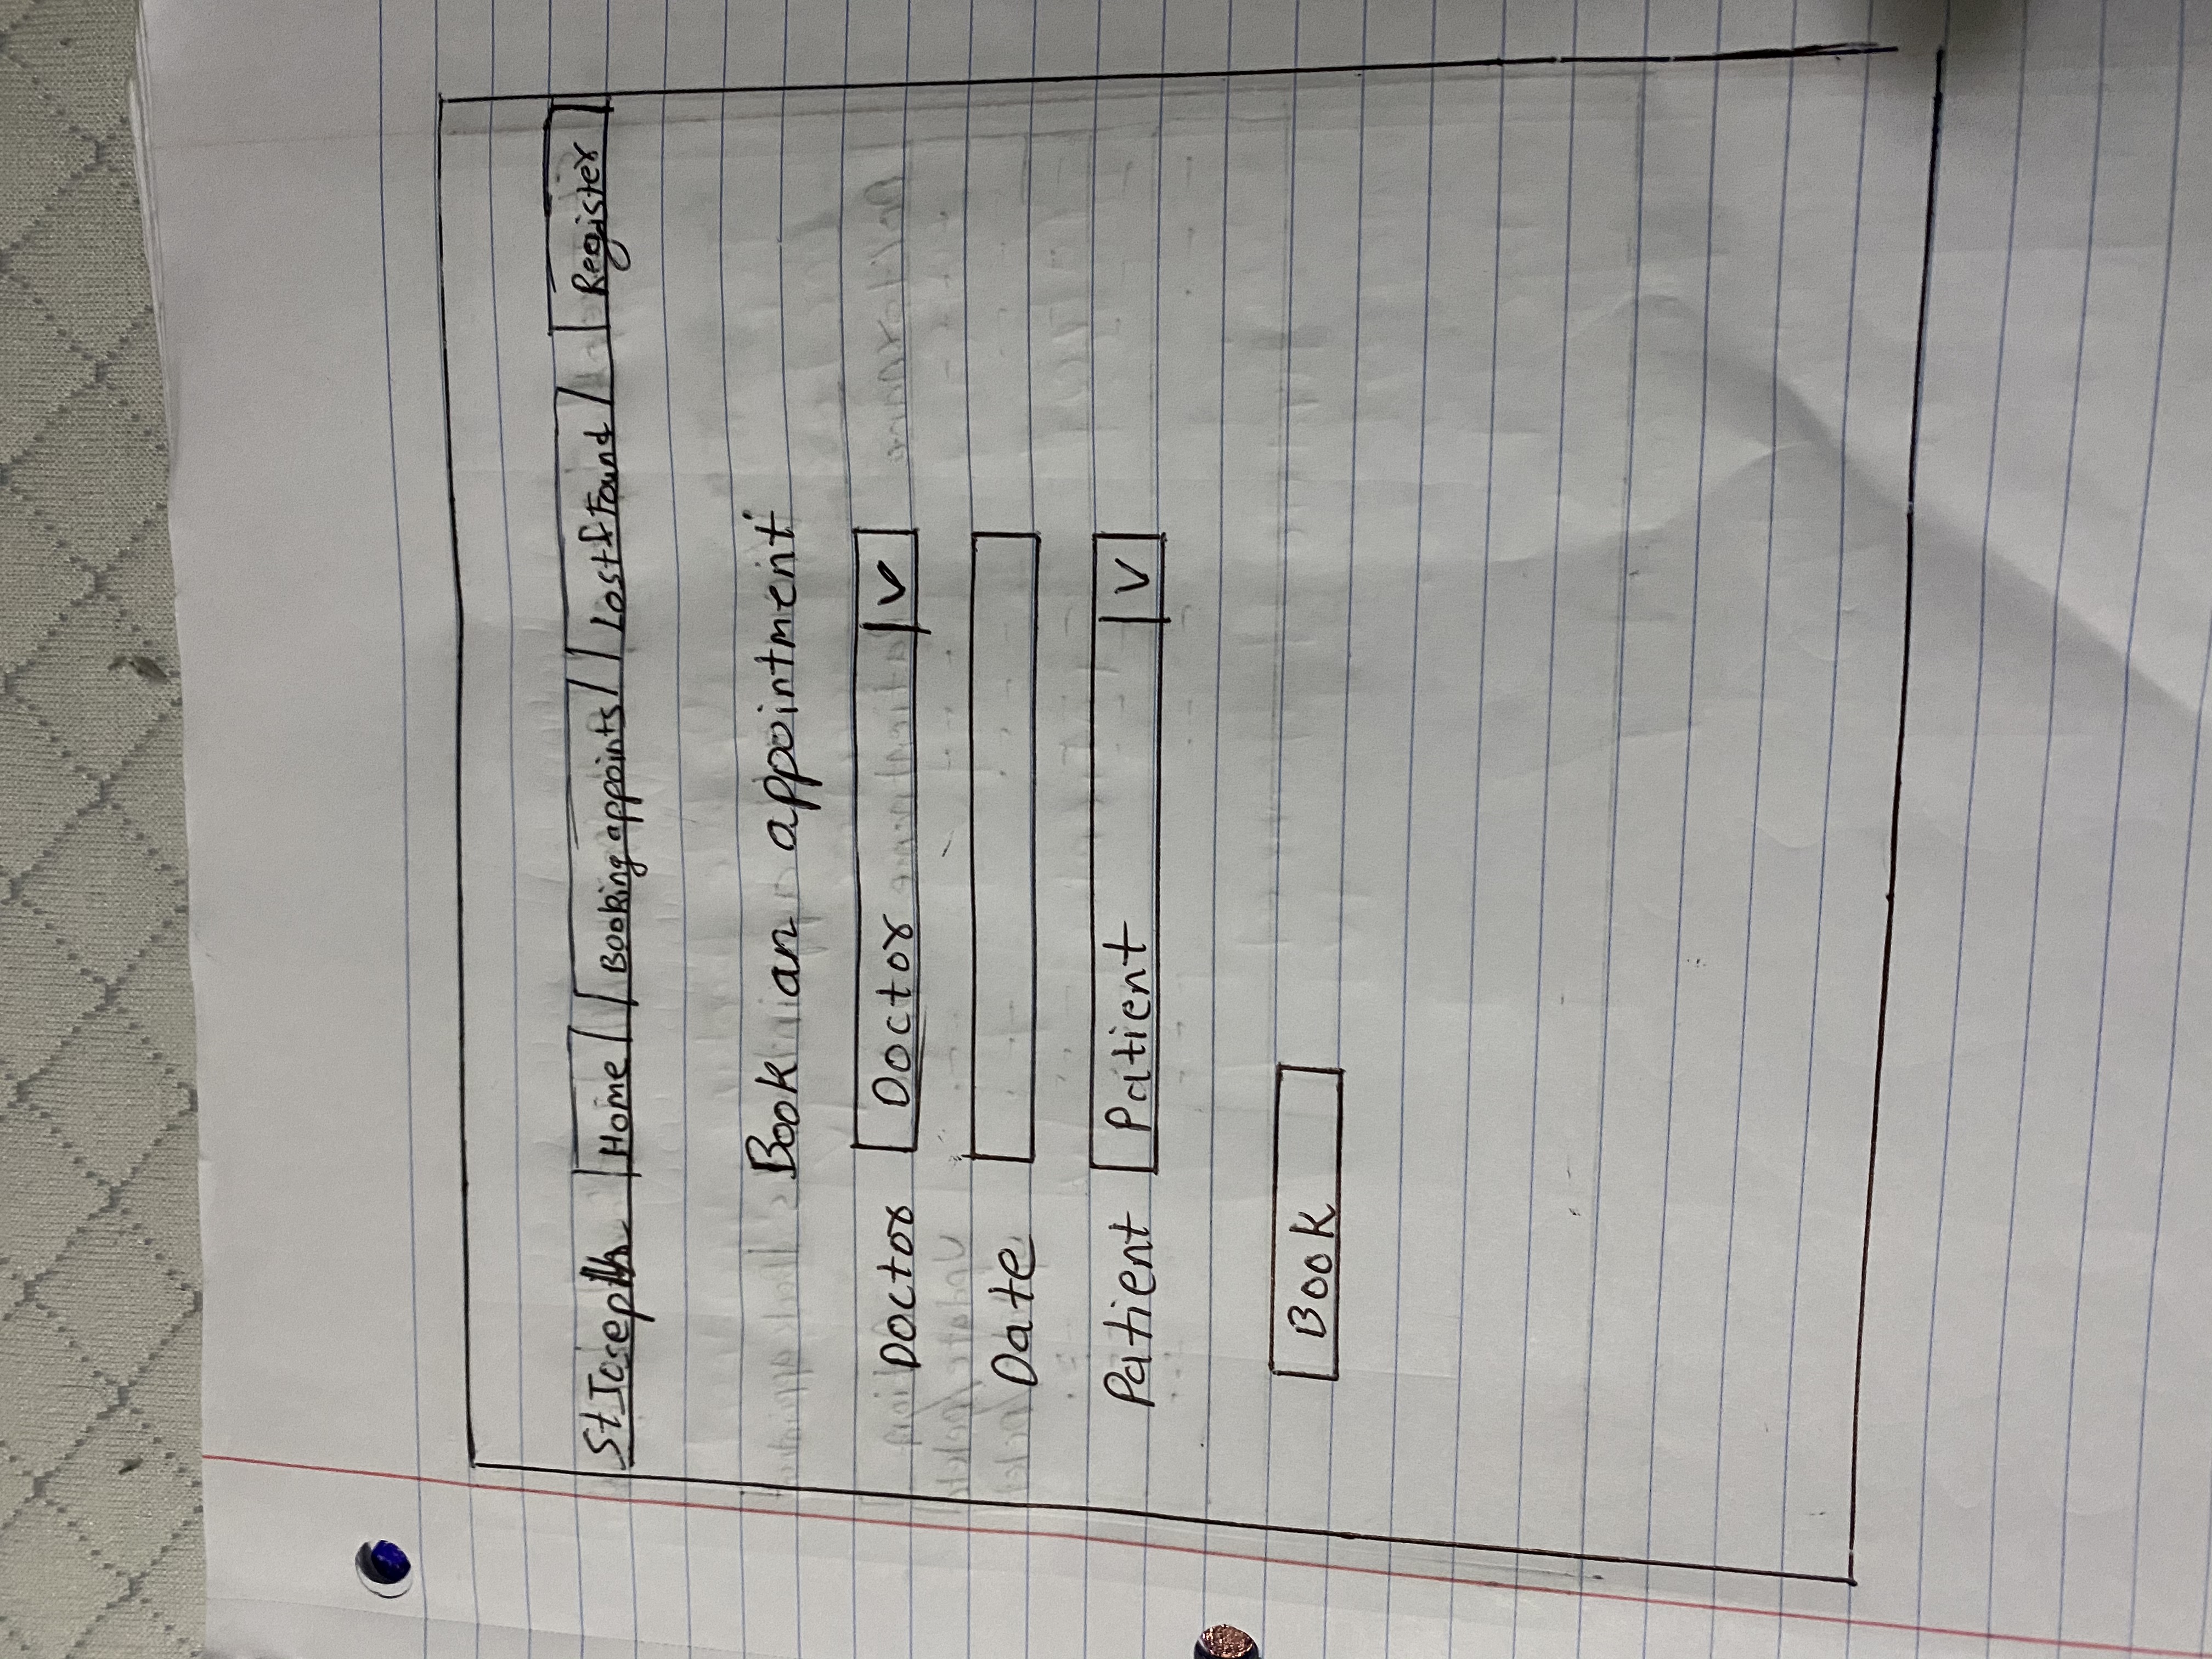 St Joseph Home Booking appoints Lost & Found Register
Book an appointment
Doctor Doctor V
Date
Patient Patient V
Book